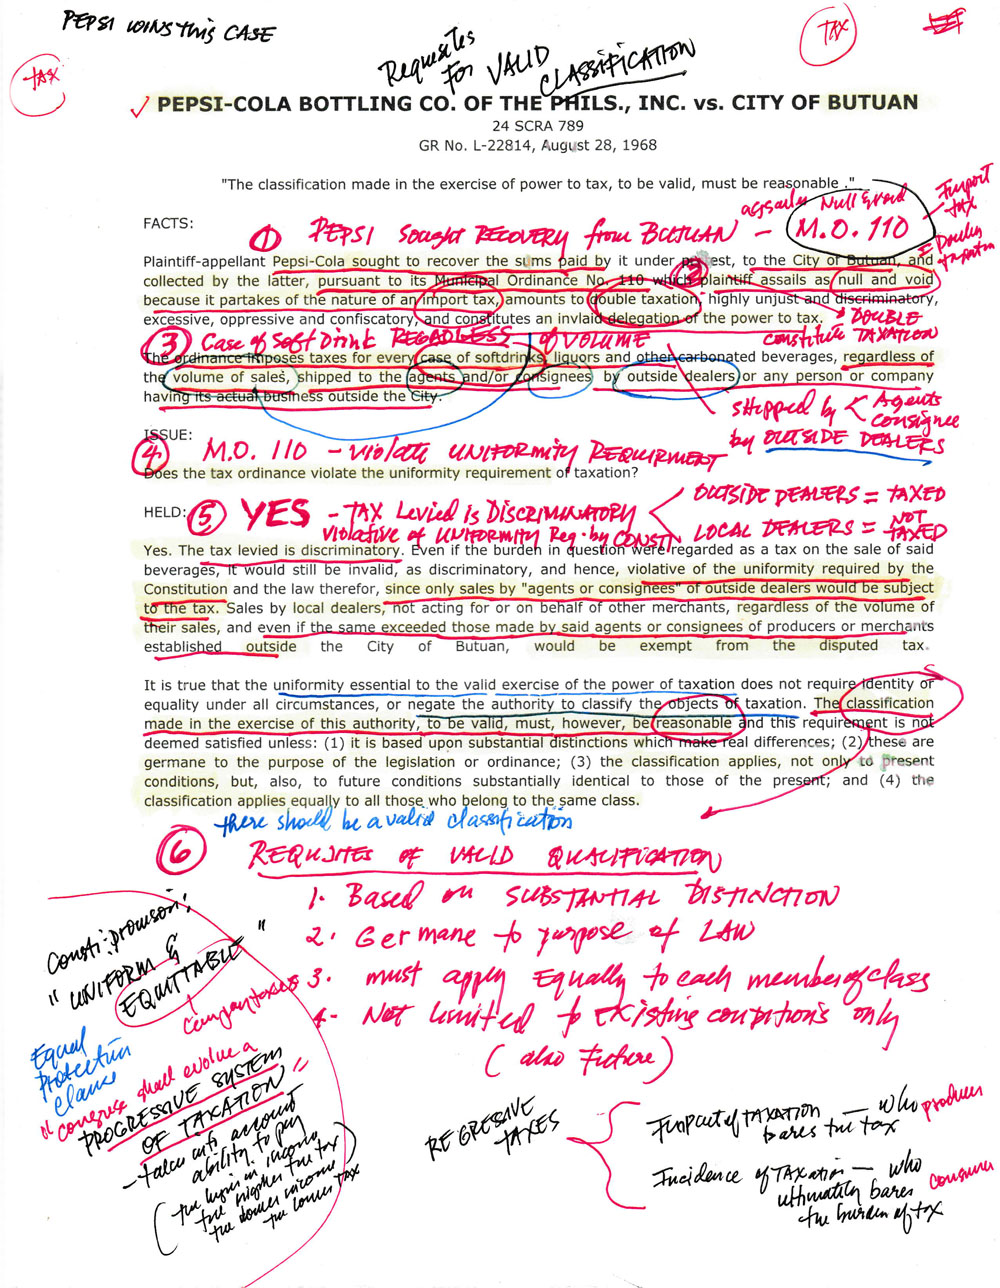 PEPSI WINS this CASE
Requisites
FOR VALID
CLASSIFICATION
TAX
TAX
PEPSI-COLA BOTTLING CO. OF THE PHILS., INC. vs. CITY OF BUTUAN
24 SCRA 789
GR No. L-22814, August 28, 1968
"The classification made in the exercise of power to tax, to be valid, must be reasonable ."
FACTS:
① PEPSI sought RECOVERY from BUTUAN -
assails Null & void
M.O. 110
- Import tax
- Double taxation
Plaintiff-appellant Pepsi-Cola sought to recover the sums paid by it under protest, to the City of Butuan, and
collected by the latter, pursuant to its Municipal Ordinance No. 110 which plaintiff assails as null and void
because it partakes of the nature of an import tax, amounts to double taxation, highly unjust and discriminatory,
excessive, oppressive and confiscatory, and constitutes an invlaid delegation of the power to tax.
DOUBLE
constitute TAXATION
③ Case of Soft Drink REGARDLESS of VOLUME
The ordinance imposes taxes for every case of softdrinks, liquors and other carbonated beverages, regardless of
the volume of sales, shipped to the agents and/or consignees by outside dealers or any person or company
having its actual business outside the City.
shipped by < Agents
consignee
by OUTSIDE DEALERS
ISSUE:
④ M.O. 110 - violate UNIFORMITY REQUIRMENT
Does the tax ordinance violate the uniformity requirement of taxation?
HELD: ⑤ YES - TAX Levied is DISCRIMINATORY
violative of UNIFORMITY Req. by CONSTI
OUTSIDE DEALERS = TAXED
LOCAL DEALERS = NOT TAXED
Yes. The tax levied is discriminatory. Even if the burden in question were regarded as a tax on the sale of said
beverages, it would still be invalid, as discriminatory, and hence, violative of the uniformity required by the
Constitution and the law therefor, since only sales by "agents or consignees" of outside dealers would be subject
to the tax. Sales by local dealers, not acting for or on behalf of other merchants, regardless of the volume of
their sales, and even if the same exceeded those made by said agents or consignees of producers or merchants
established outside the City of Butuan, would be exempt from the disputed tax.
It is true that the uniformity essential to the valid exercise of the power of taxation does not require identity or
equality under all circumstances, or negate the authority to classify the objects of taxation. The classification
made in the exercise of this authority, to be valid, must, however, be reasonable and this requirement is not
deemed satisfied unless: (1) it is based upon substantial distinctions which make real differences; (2) these are
germane to the purpose of the legislation or ordinance; (3) the classification applies, not only to present
conditions, but, also, to future conditions substantially identical to those of the present; and (4) the
classification applies equally to all those who belong to the same class.
there should be a valid classification
⑥ REQUISITES of VALID QUALIFICATION
1. Based on SUBSTANTIAL DISTINCTION
2. Germane to purpose of LAW
3. must apply Equally to each member of class
4. Not limited to Existing conditions only
(also Future)
Consti. provision:
"UNIFORM &
EQUITTABLE"
Equal
Protection
Clause
"Congress shall evolve a
PROGRESSIVE SYSTEM
OF TAXATION"
- takes into amount
ability to pay
(the higher in income
the higher the tax
the lower income
the lower tax)
REGRESSIVE
TAXES
Impact of TAXATION - who
bares the tax
producer
Incidence of TAXation - who
ultimately bares
the burden of tax
consumer